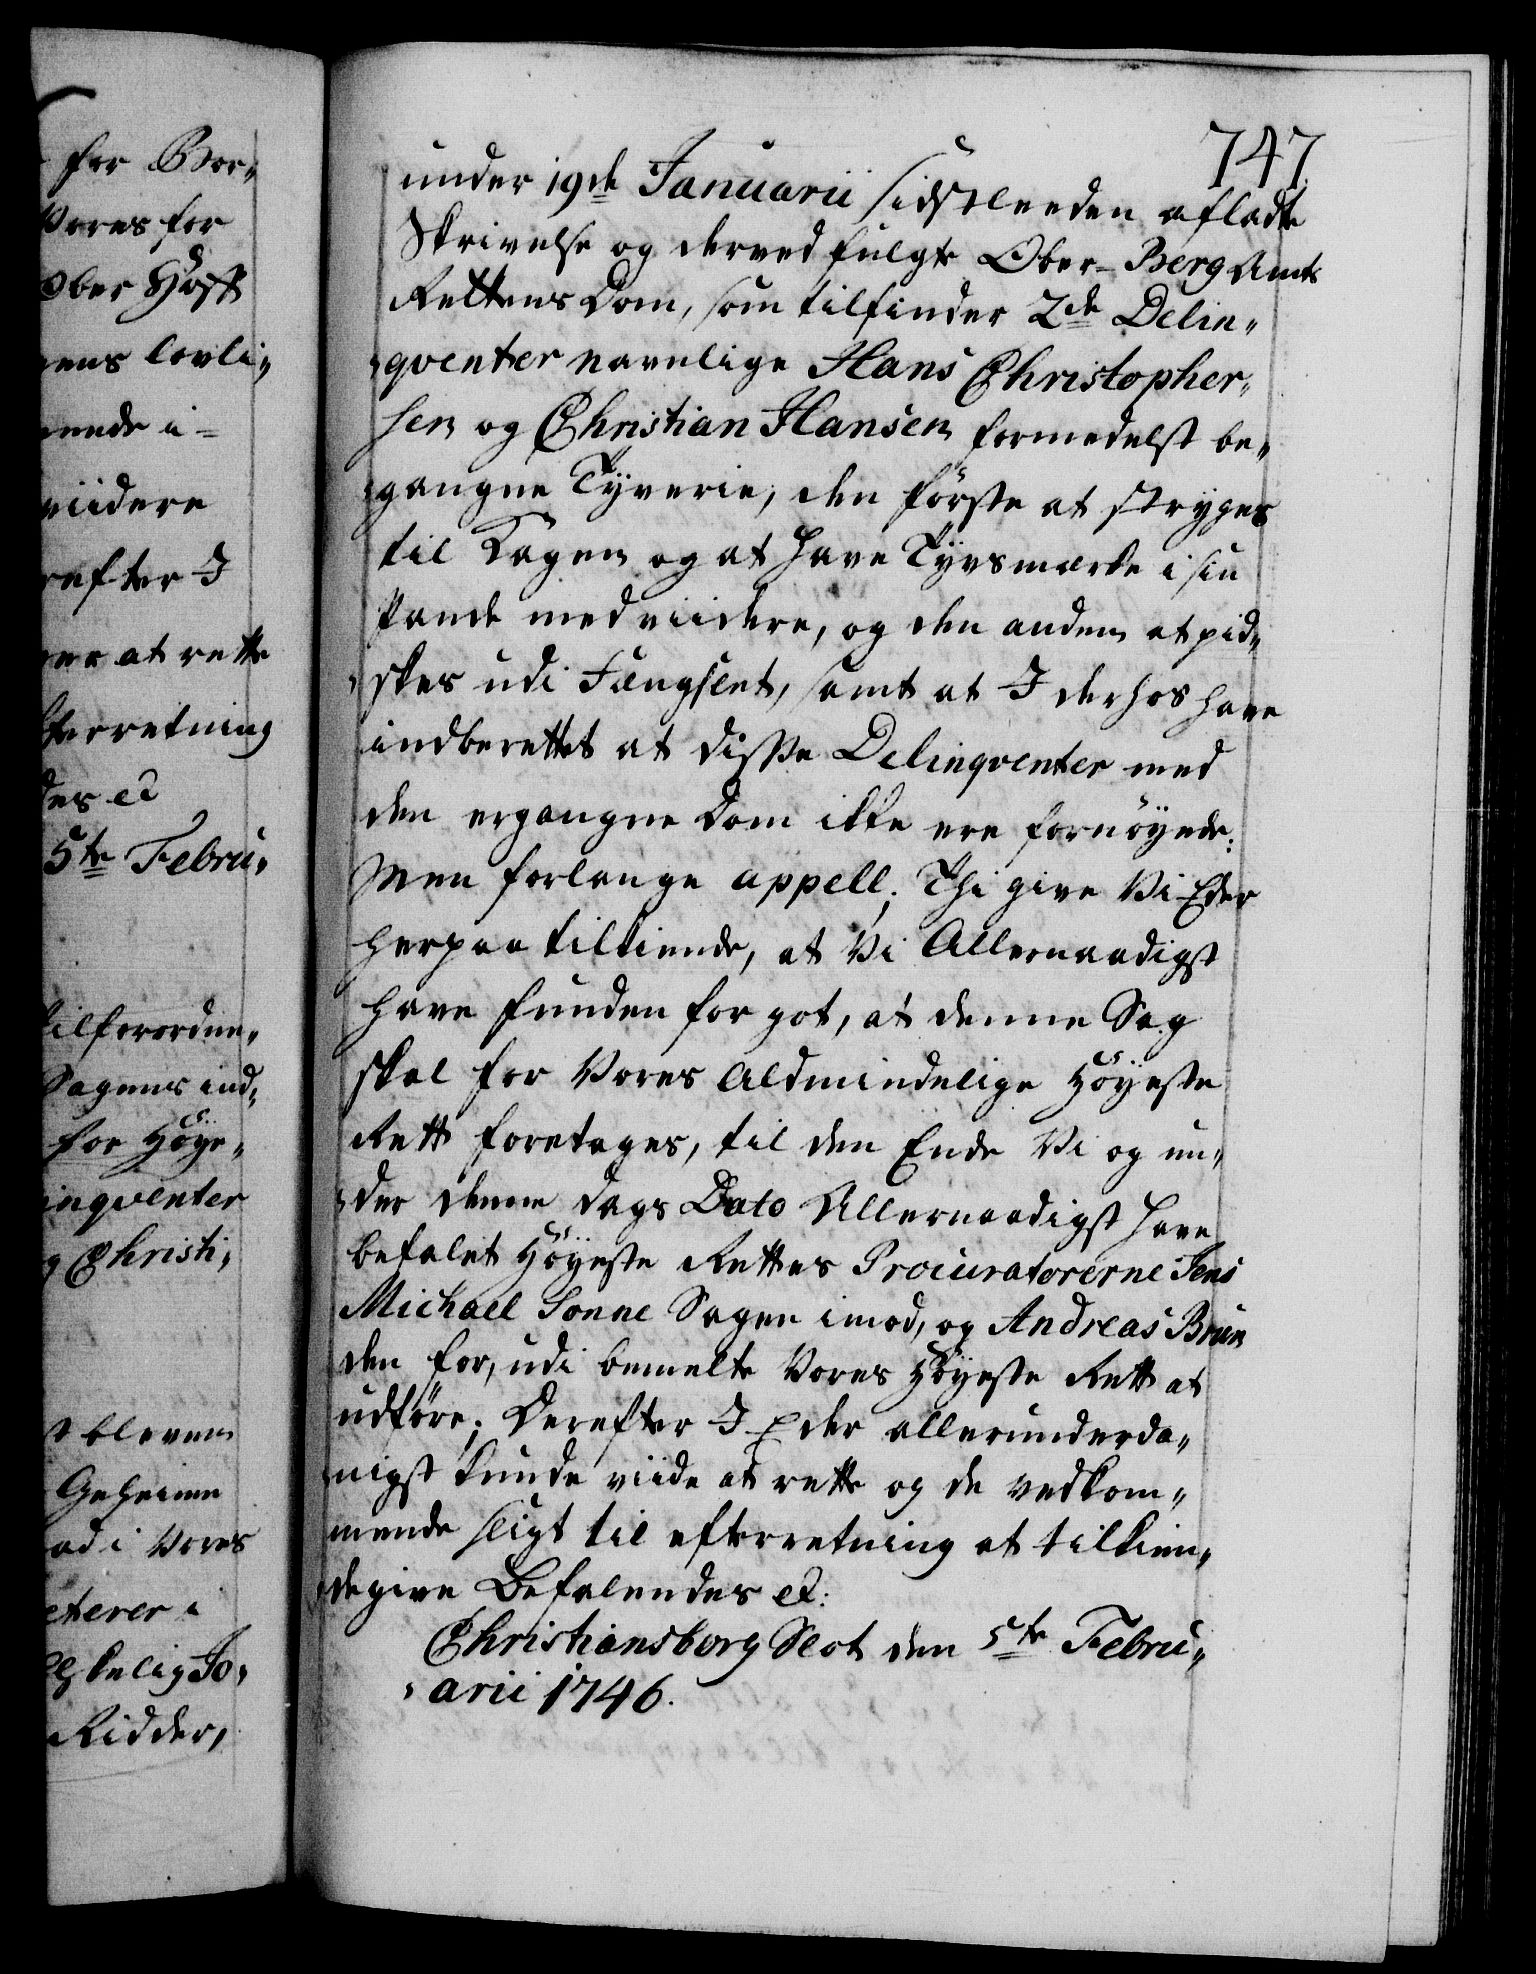 for Bor„
Vores for
Ober Hoff
ens lovli„
ende i=
viidere
efter I
at rette
efterretning
des etc
5te Febru„
tilforordne„
Sagens ind„
for Höye„
inqventer
Christi„
bleven
Geheime
ad i Vores
eterer i
Elskelig Jo„
Ridder,
747.
under 19de Januarii sidstleeden afladte
Skrivelse og derved fulgte Ober-Berg Amts
Rettens Dom, som tilfinder 2de Delin„
„qventer navnlige Hans Christopher„
sen og Christian Hansen formedelst be„
„gangne Tyverie, den förste at stryges
til Kagen og at have Tyvsmærke i sin
Pande med viidere, og den anden at pid„
„skes udi Fængslet, samt at I derhos have
indberettet at disse Delinqventer med
den ergangne Dom ikke ere fornöyede:
Men forlange appell; Thi give Vi Eder
herpaa tilkiende, at Vi Allernaadigst
have funden for got, at denne Sag
skal for Vores Aldmindelige Höyeste
Rett foretages, til den Ende Vi og un„
„der denne Dags Dato Allernaadigst have
befalet Höyeste Rettes Procuratorerne Jens
Michael Sonne Sagen imod, og Andreas Bruun
den for, udi bemelte Vores Höyeste Rett at
udföre; Derefter I Eder allerunderda„
„nigst kunde viide at rette og de vedkom„
mende sligt til efterretning at tilkien„
„degive Befalendes etc:
Christiansborg Slot den 5te Febru„
„arii 1746.